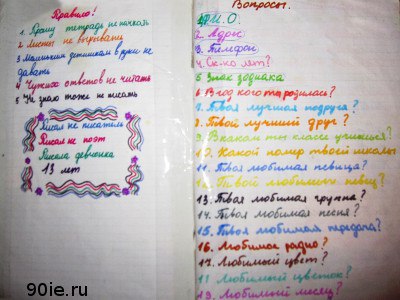 Правило!
1. Прошу тетрадь не пачкать
2. Листы не вырывать
3. Маленьким детишкам в руки не
давать
4 Чужих ответов не читать
5 Не знаю тоже и писать
Писал не писатель
Писал не поэт
Писала девчонка
13 лет
Вопросы.
1. Ф.И.О.
2. Адрес
3. Телефон
4. Ск-ко лет?
5 Знак зодиака
6 В год кого ты родилась?
7. Твоя лучшая подруга?
8. Твой лучший друг?
9. В каком ты классе учишься?
10. Какой номер твоей школы
11. Твоя любимая певица?
12. Твой любимый певец?
13. Твоя любимая группа?
14. Твоя любимая песня?
15. Твоя любимая передача?
16. Любимое радио?
17. Любимый цвет?
18 Любимый цветок?
19. Любимый месяц?
90ie.ru